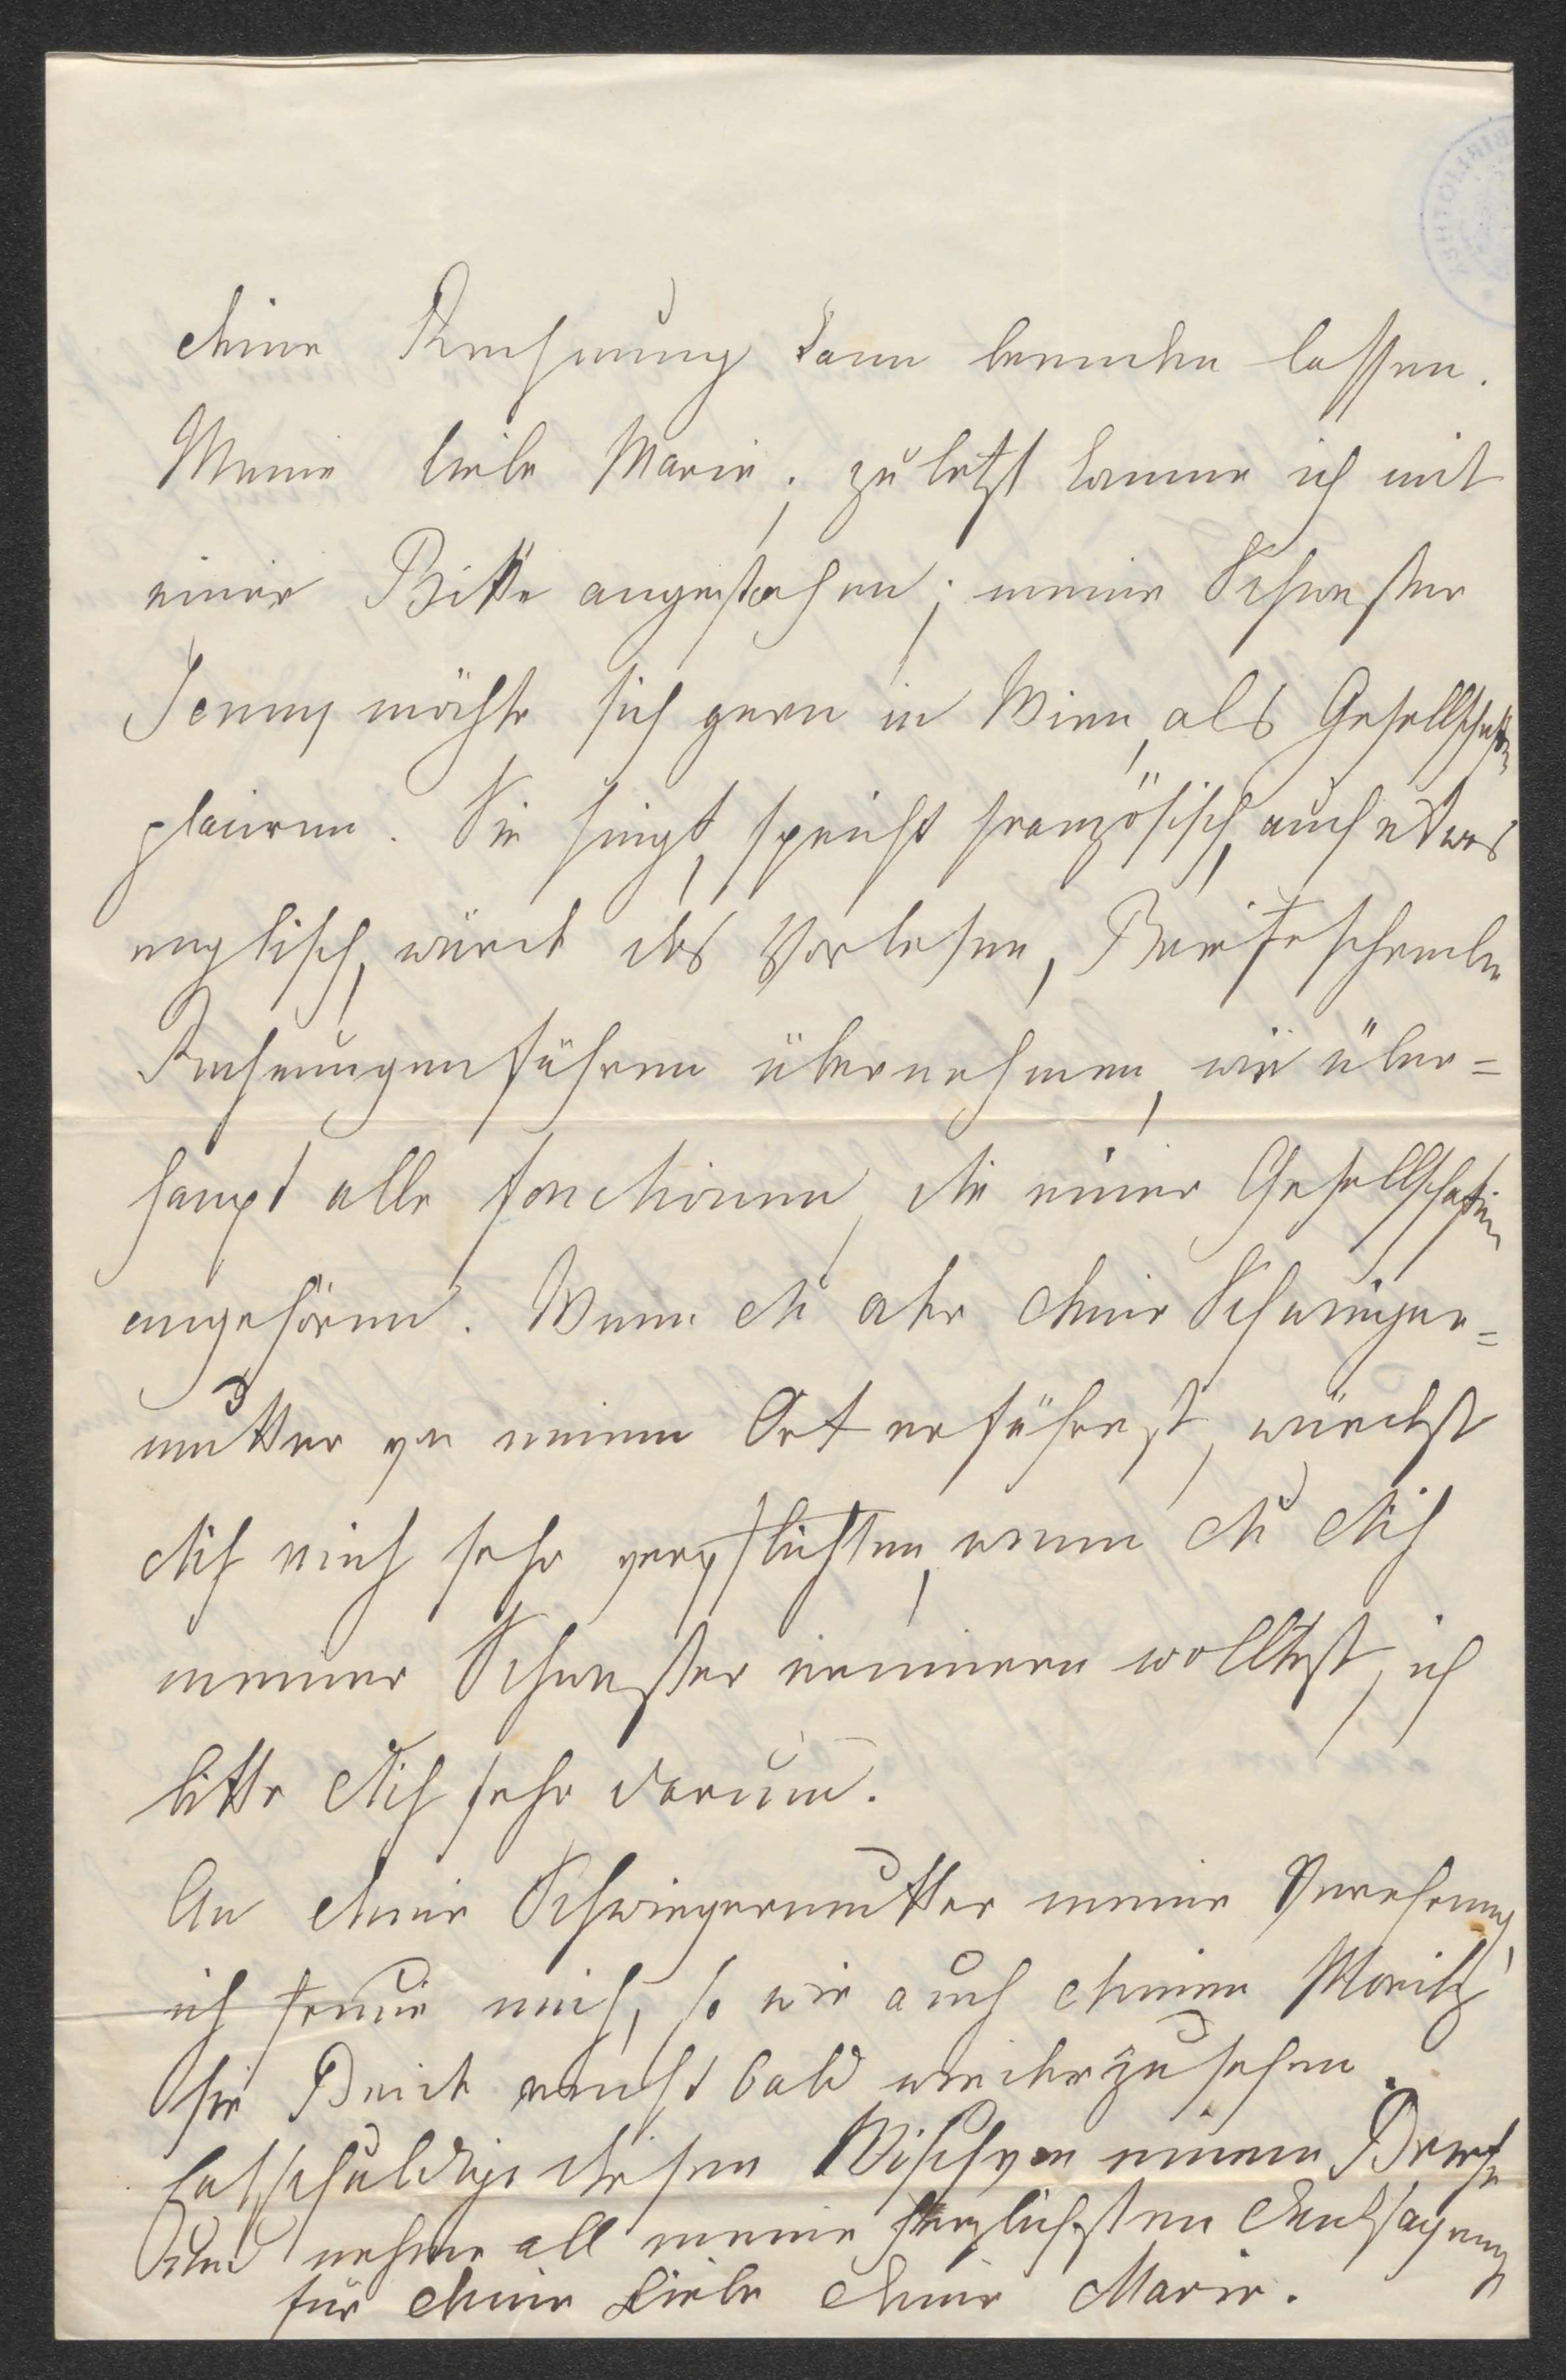 deine Rechnung kann bereiten lassen.
Meine liebe Marie; zuletzt komme ich mit
einer Bitte angestochen; meine Schwester
Jenny möchte sich gern in Wien, als Gesellschafterin
placiren. Sie singt, spricht französisch, auch etwas
englisch, würde das Vorlesen, Briefeschreiben
Rechnungenführen übernehmen, wie über=
haupt alle fonctionen, die einer Gesellschafterin
angehören. Wenn du oder deine Schwieger=
mutter von einem Ort erführest, würdest
dich mich sehr verpflichten, wenn du dich
meiner Schwester erinnern wolltest, ich
bitte dich sehr darum.
An deine Schwiegermutter meine Verehrung,
ich freue mich, so wie auch deinen Moritz
Sie Beide recht bald wiederzusehen.
Entschuldige diesen Wisch von einem Briefe
und nehme all meine herzlichsten Danksagung
für deine Liebe deine Marie.